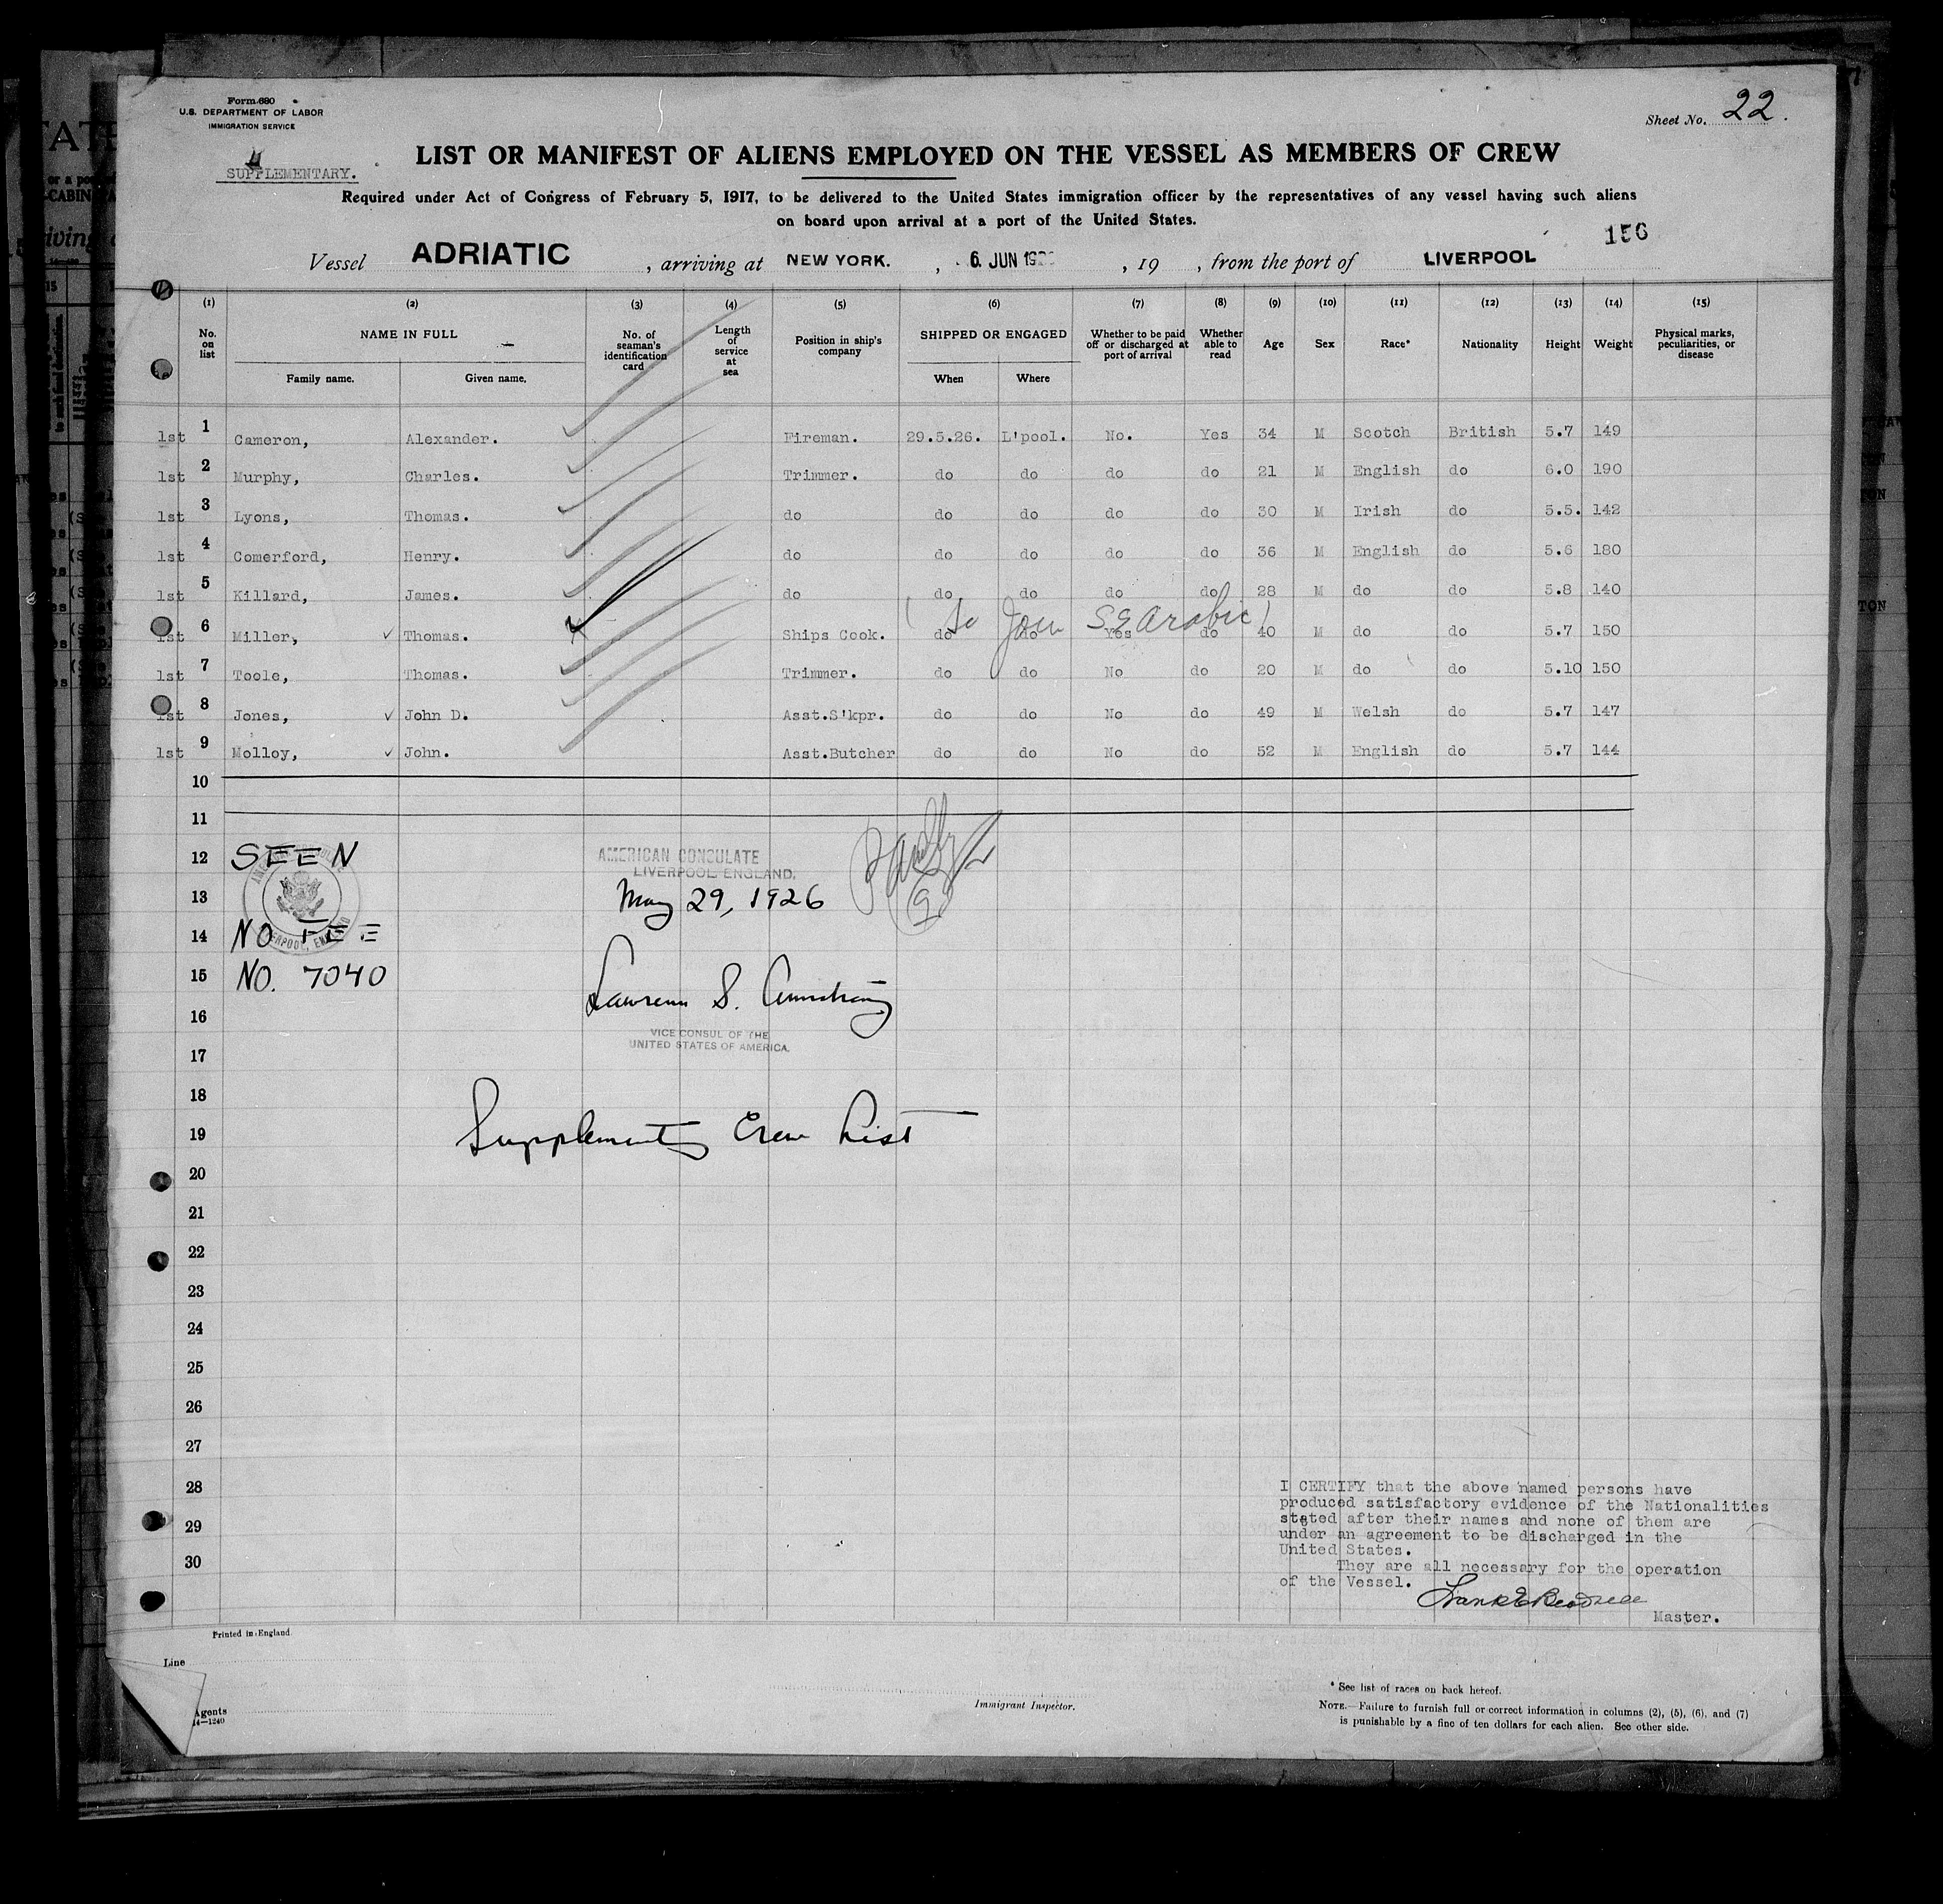 Form 680
U.S. DEPARTMENT OF LABOR
IMMIGRATION SERVICE
Sheet No. 22.
SUPPLEMENTARY.
LIST OR MANIFEST OF ALIENS EMPLOYED ON THE VESSEL AS MEMBERS OF CREW
Required under Act of Congress of February 5, 1917, to be delivered to the United States immigration officer by the representatives of any vessel having such aliens
on board upon arrival at a port of the United States.
156
Vessel ADRIATIC, arriving at NEW YORK., 6 JUN, 19 , from the port of LIVERPOOL
(1) (2) (3) (4) (5) (6) (7) (8) (9) (10) (11) (12) (13) (14) (15)
No. on list NAME IN FULL No. of seaman's identification card Length of service at sea Position in ship's company SHIPPED OR ENGAGED Whether to be paid off or discharged at port of arrival Whether able to read Age Sex Race* Nationality Height Weight Physical marks, peculiarities, or disease
Family name. Given name. When Where
1st 1 Cameron, Alexander. Fireman. 29.5.26. L'pool. No. Yes 34 M Scotch British 5.7 149
1st 2 Murphy, Charles. Trimmer. do do do do 21 M English do 6.0 190
1st 3 Lyons, Thomas. do do do do do 30 M Irish do 5.5. 142
1st 4 Comerford, Henry. do do do do do 36 M English do 5.6 180
1st 5 Killard, James. do do do do do 28 M do do 5.8 140
(To Join SS Arabic)
1st 6 Miller, Thomas. Ships Cook. do do Yes do 40 M do do 5.7 150
1st 7 Toole, Thomas. Trimmer. do do No do 20 M do do 5.10 150
1st 8 Jones, John D. Asst.S'kpr. do do No do 49 M Welsh do 5.7 147
1st 9 Molloy, John. Asst.Butcher do do No do 52 M English do 5.7 144
10
11
12 SEEN AMERICAN CONSULATE
LIVERPOOL, ENGLAND.
13 May 29, 1926 9
14 NO FEE
15 NO. 7040
Lawrence S. Armstrong
16
VICE CONSUL OF THE
UNITED STATES OF AMERICA.
17
18
19 Supplementary Crew List
20
21
22
23
24
25
26
27
28
29
30
I CERTIFY that the above named persons have
produced satisfactory evidence of the Nationalities
stated after their names and none of them are
under an agreement to be discharged in the
United States.
They are all necessary for the operation
of the Vessel.
Master.
Printed in England.
Line
Agents
14—1240
Immigrant Inspector.
* See list of races on back hereof.
NOTE.—Failure to furnish full or correct information in columns (2), (5), (6), and (7)
is punishable by a fine of ten dollars for each alien. See other side.